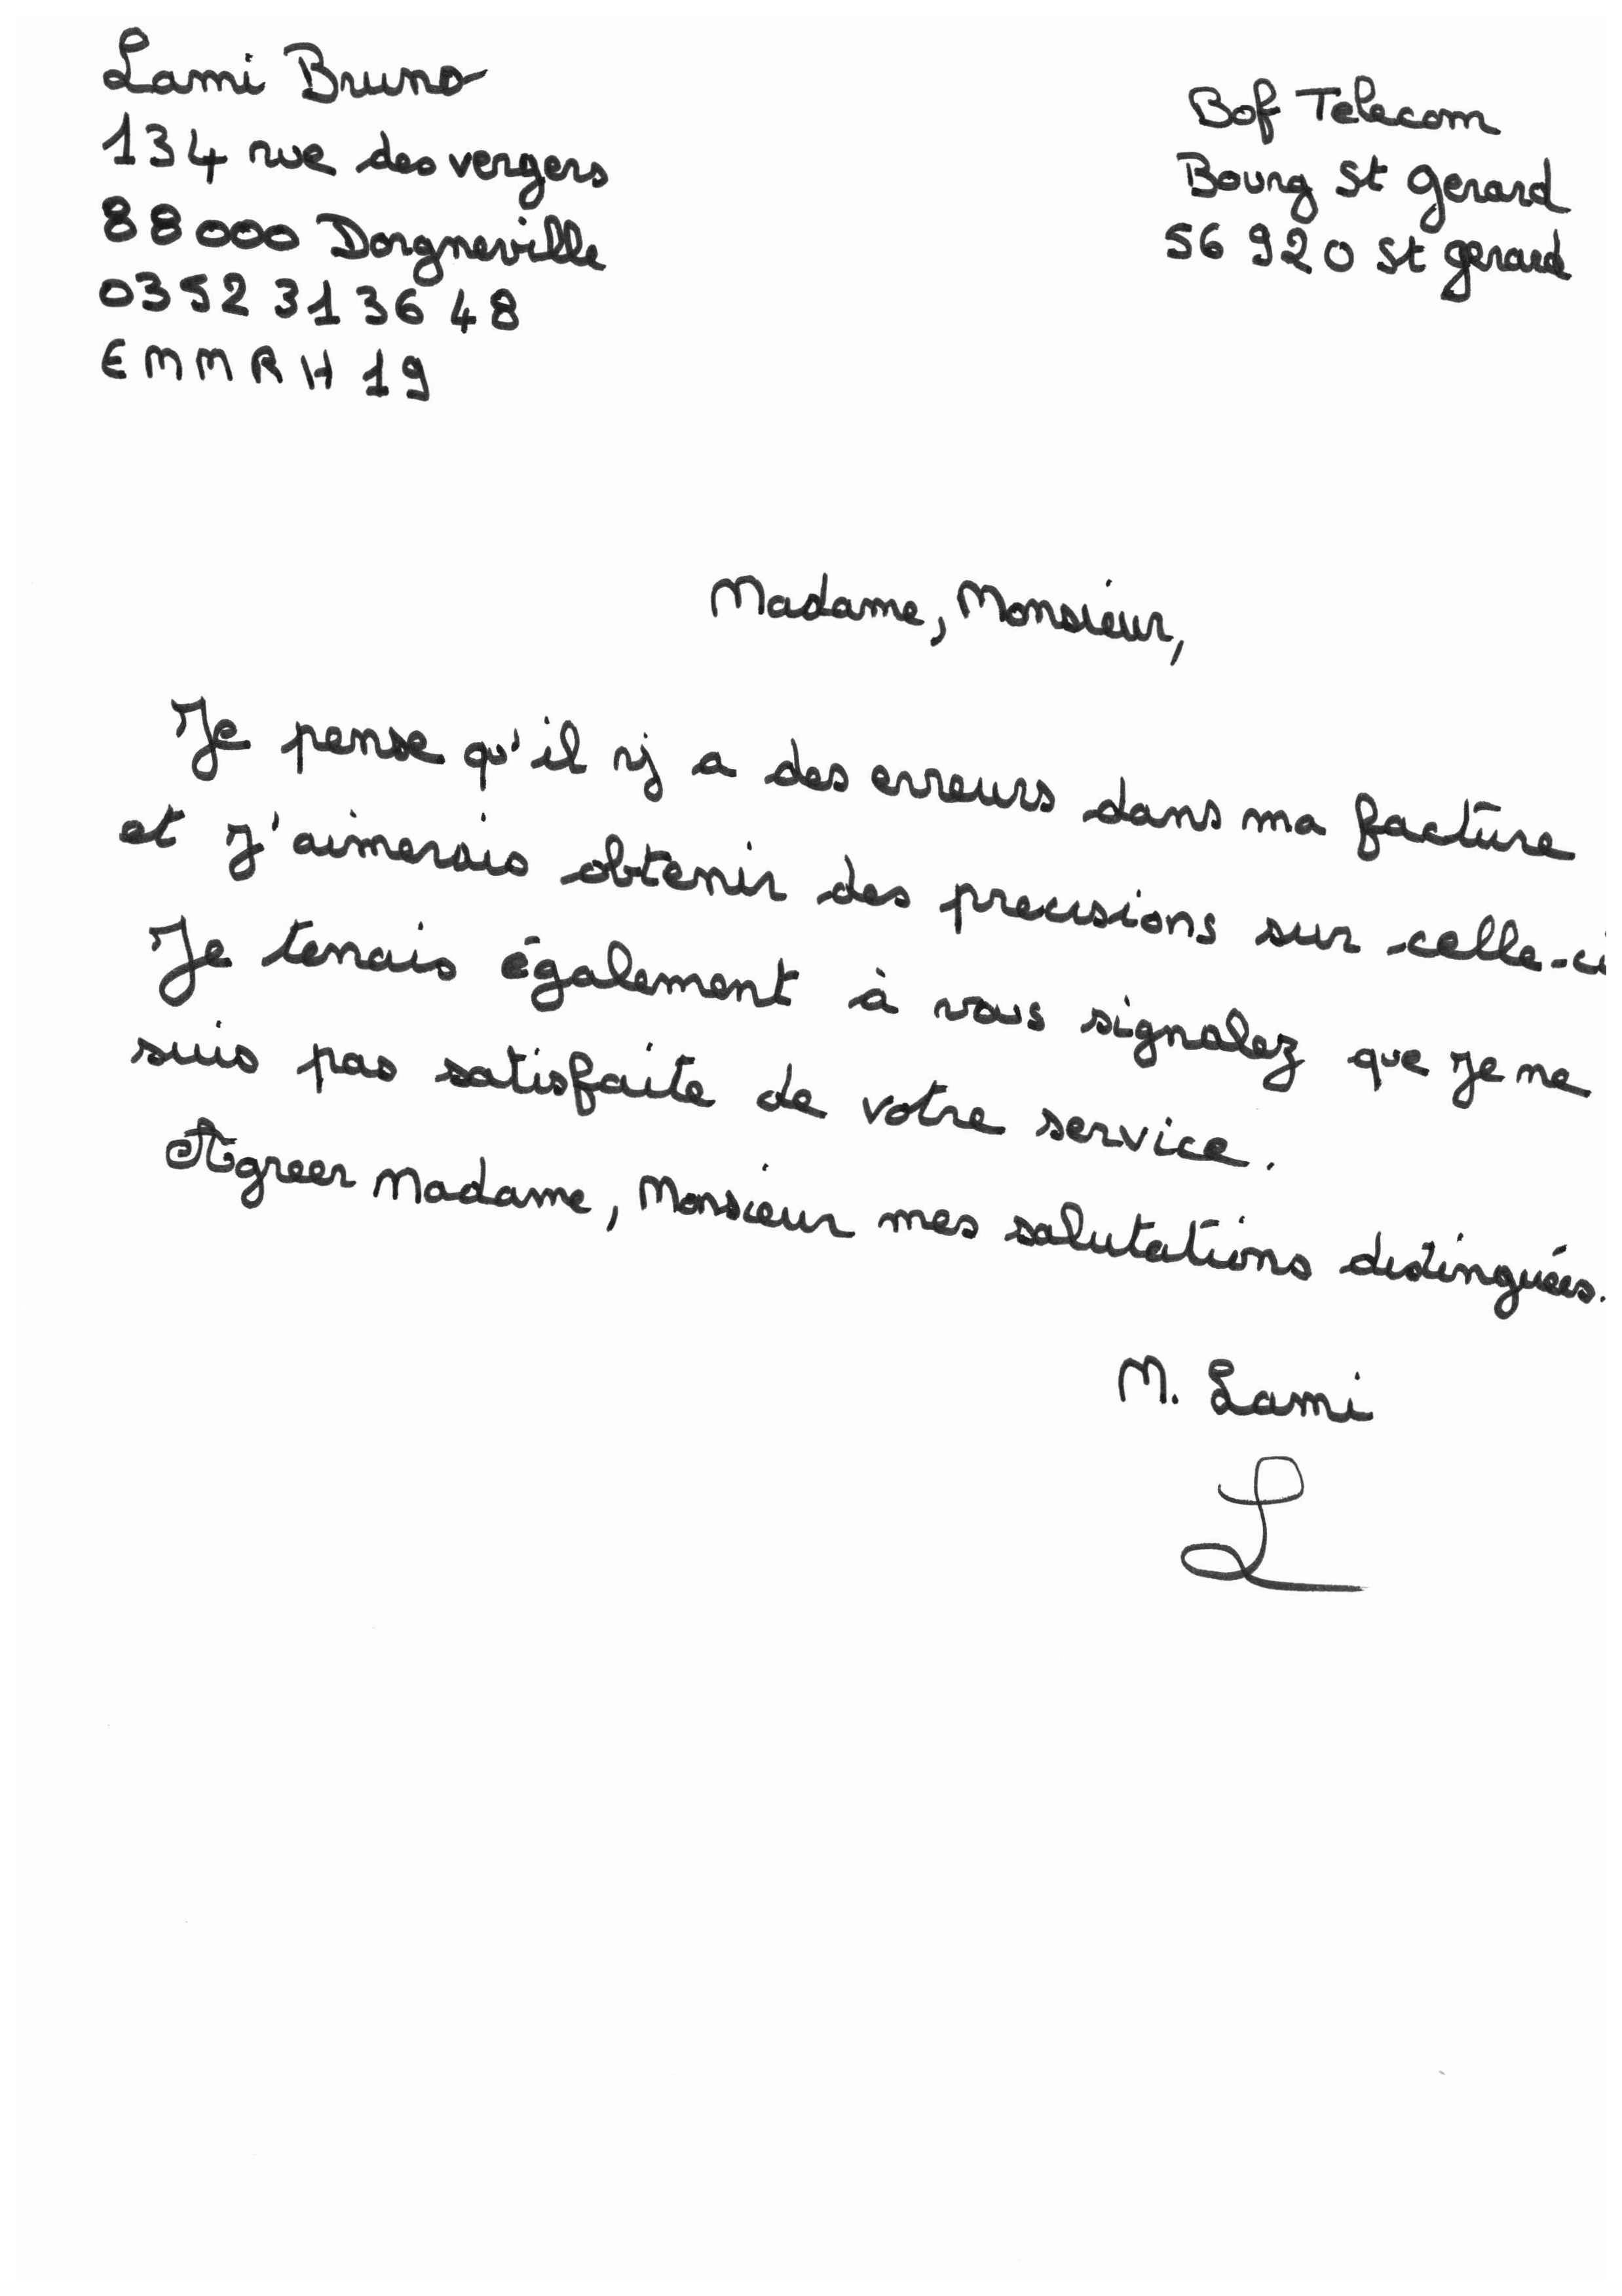 Lami Bruno
134 rue des vergers
88000 Dorgneville
03 52 31 36 48
EMMRH19
Bof Telecom
Bourg St Gerard
56 920 St gerard
Madame, Monsieur,
Je pense qu'il n'y a des erreurs dans ma facture
et j'aimerais obtenir des precisions sur celle-ci
Je tenais également à vous signalez que je ne
suis pas satisfaite de votre service.
Agreer Madame, Monsieur mes salutations distinguées.
M. Lami
L